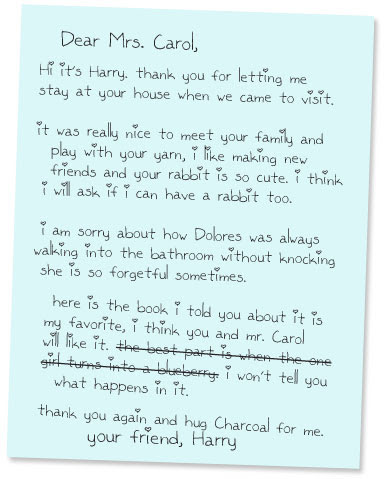 Dear Mrs. Carol,
Hi it's Harry. thank you for letting me
stay at your house when we came to visit.
it was really nice to meet your family and
play with your yarn, i like making new
friends and your rabbit is so cute. i think
i will ask if i can have a rabbit too.
i am sorry about how Dolores was always
walking into the bathroom without knocking
she is so forgetful sometimes.
here is the book i told you about it is
my favorite, i think you and mr. Carol
will like it. the best part is when the one
girl turns into a blueberry. i won't tell you
what happens in it.
thank you again and hug Charcoal for me.
your friend, Harry